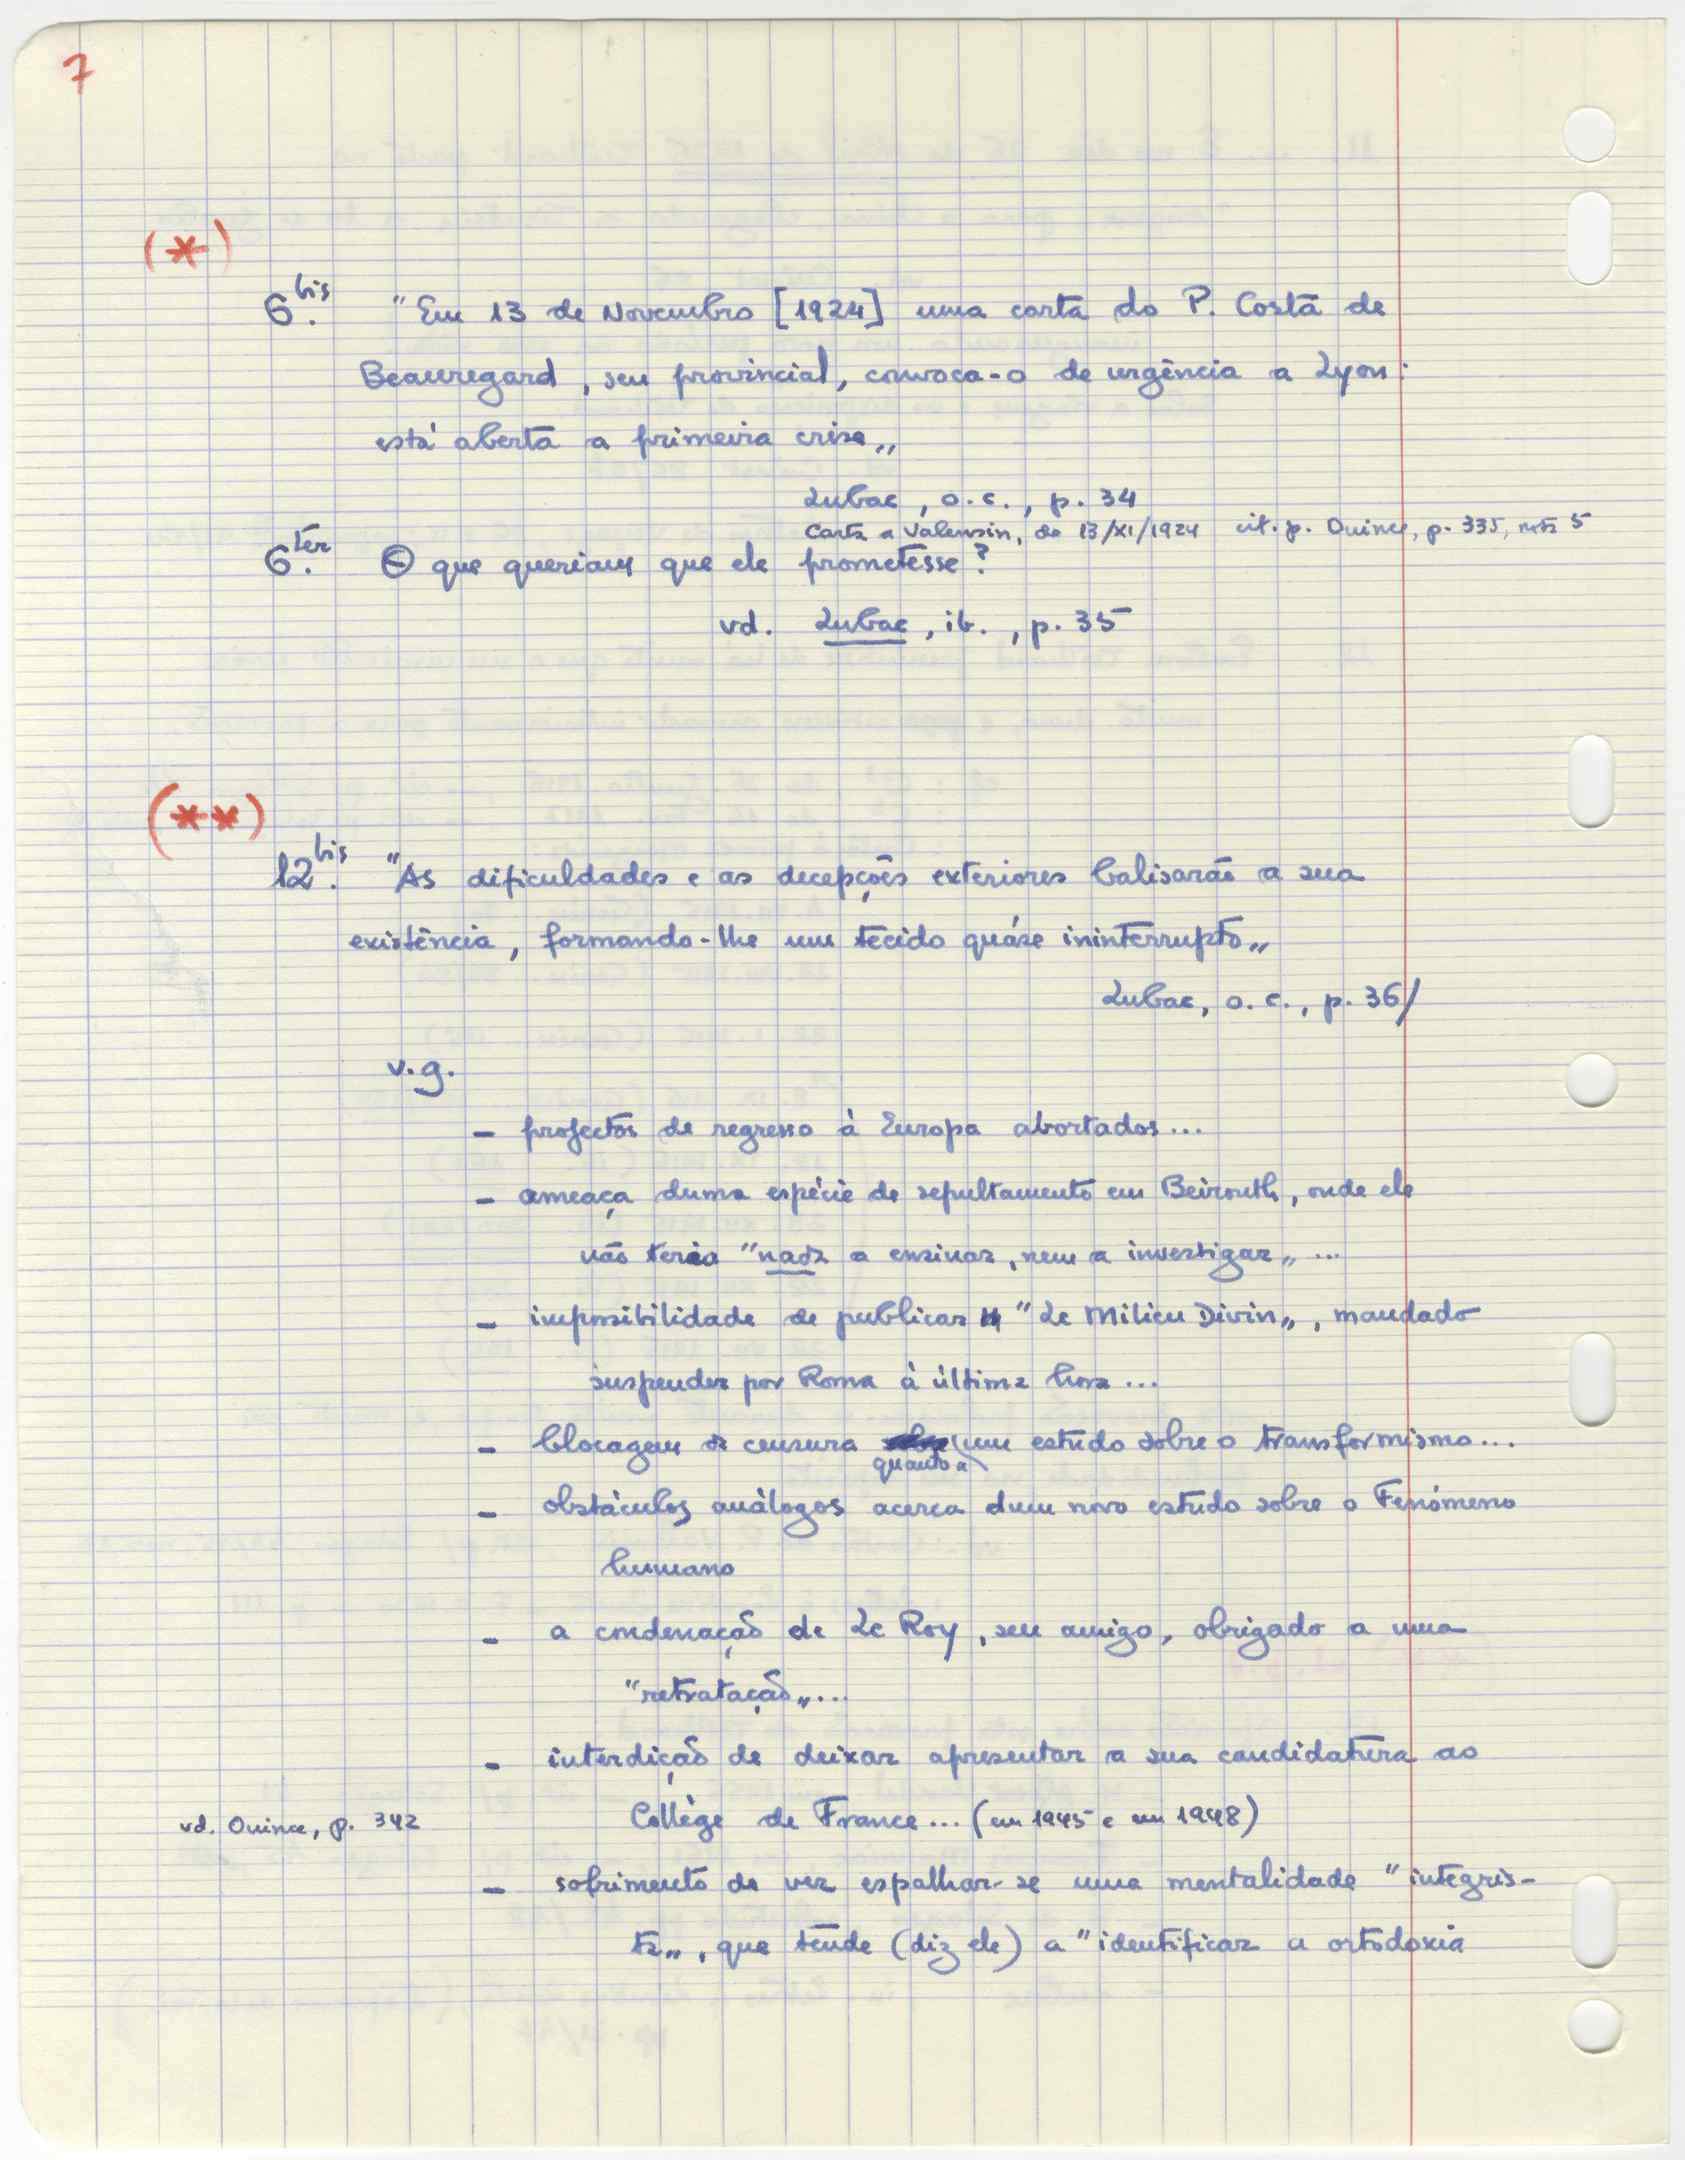 7
(*)
6.bis "Em 13 de Novembro [1924] uma carta do P. Costa de
Beauregard, seu provincial, convoca-o de urgência a Lyon:
está aberta a primeira crise„
Lubac, o.c., p. 34
Carta a Valensin, de 13/XI/1924 cit. p. Ouince, p. 335, nota 5
6.ter O que queriam que ele prometesse?
vd. Lubac, ib., p. 35
(**)
12.bis "As dificuldades e as decepções exteriores balisarão a sua
existência, formando-lhe um tecido quáse ininterrupto„
Lubac, o.c., p. 36/
v.g.
- projectos de regresso à Europa abortados...
- ameaça duma espécie de sepultamento em Beirouth, onde ele
não teria "nada a ensinar, nem a investigar„ ...
- impossibilidade de publicar "Le Milieu Divin„, mandado
suspender por Roma à última hora...
- blocagem de censura quanto a um estudo sobre o transformismo...
- obstáculos análogos acerca dum novo estudo sobre o Fenómeno
humano
- a condenação de Le Roy, seu amigo, obrigado a uma
"retratação„...
- interdição de deixar apresentar a sua candidatura ao
vd. Ouince, p. 342 Collège de France... (em 1945 e em 1948)
- sofrimento de ver espalhar-se uma mentalidade "integris-
ta„, que tende (diz ele) a "identificar a ortodoxia